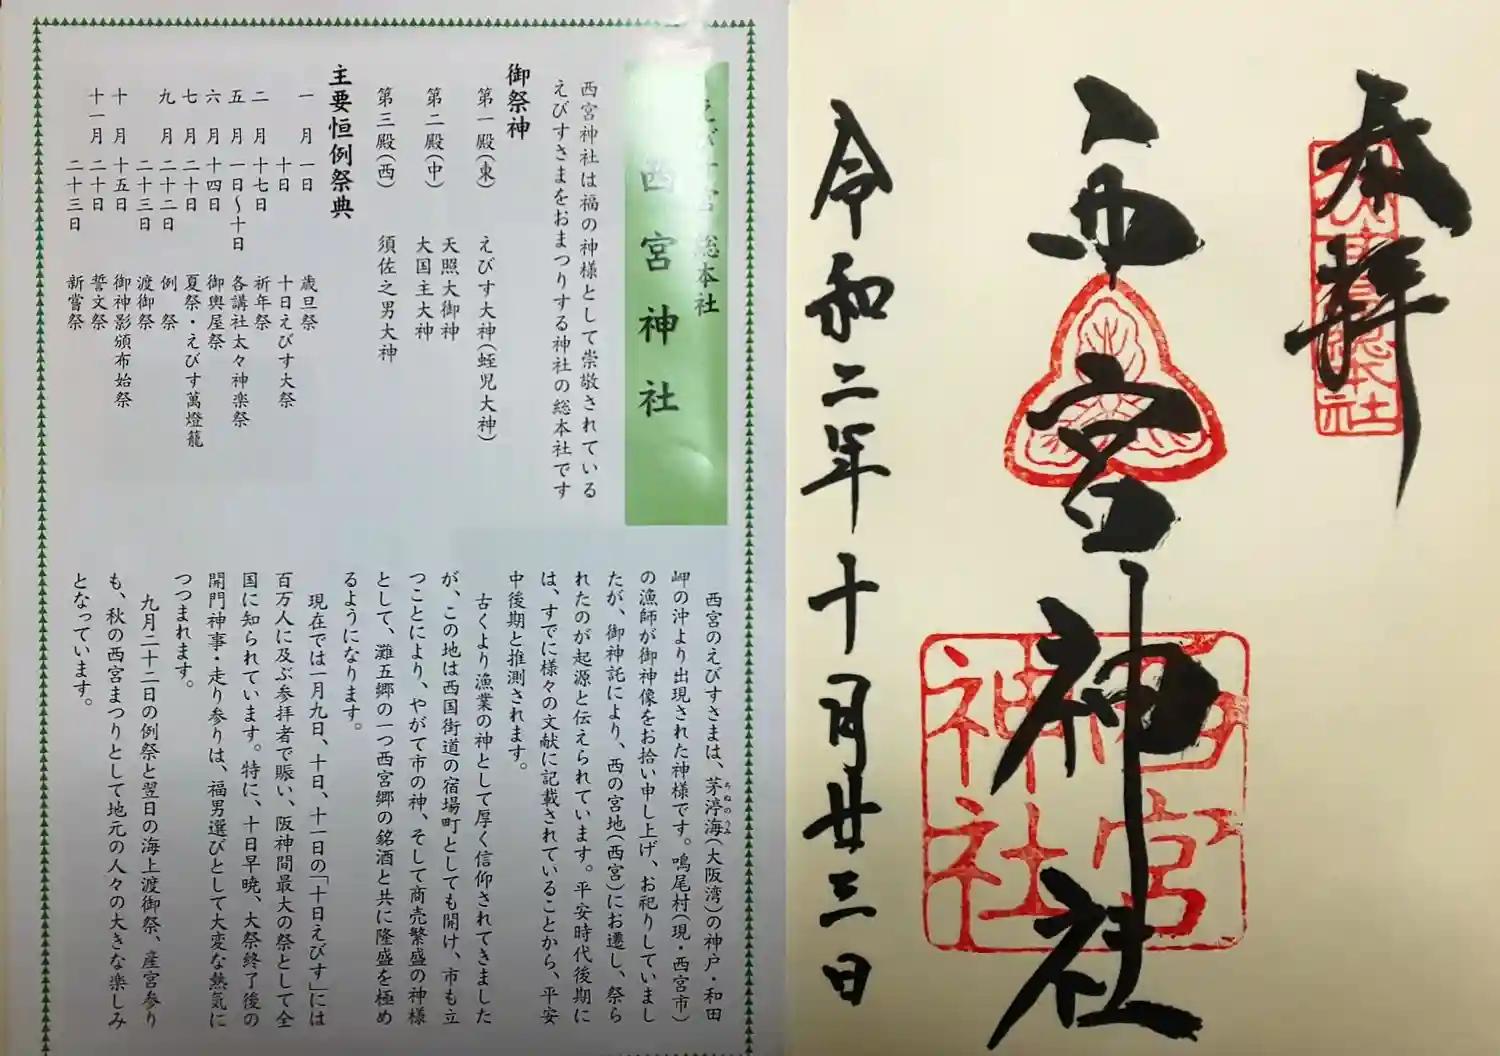 奉拝
西宮神社
令和二年十月廿三日
西宮
神社
えびす宮 総本社
西宮神社
西宮神社は福の神様として崇敬されている
えびすさまをおまつりする神社の総本社です
御祭神
第一殿(東) えびす大神(蛭児大神)
第二殿(中) 天照大御神
大国主大神
第三殿(西) 須佐之男大神
主要恒例祭典
一月一日 歳旦祭
十日 十日えびす大祭
二月十七日 祈年祭
五月一日〜十日 各講社太々神楽祭
六月十四日 御輿屋祭
七月二十日 夏祭・えびす萬燈籠
九月二十二日 例祭
二十三日 渡御祭
十月十五日 御神影頒布始祭
十一月二十日 誓文祭
二十三日 新嘗祭
西宮のえびすさまは、茅渟海(大阪湾)の神戸・和田
ちぬのうみ
岬の沖より出現された神様です。鳴尾村(現・西宮市)
の漁師が御神像をお拾い申し上げ、お祀りしていまし
たが、御神託により、西の宮地(西宮)にお遷し、祭ら
れたのが起源と伝えられています。平安時代後期に
は、すでに様々の文献に記載されていることから、平安
中後期と推測されます。
古くより漁業の神として厚く信仰されてきました
が、この地は西国街道の宿場町としても開け、市も立
つことにより、やがて市の神、そして商売繁盛の神様
として、灘五郷の一つ西宮郷の銘酒と共に隆盛を極め
るようになります。
現在では一月九日、十日、十一日の「十日えびす」には
百万人に及ぶ参拝者で賑い、阪神間最大の祭として全
国に知られています。特に、十日早暁、大祭終了後の
開門神事・走り参りは、福男選びとして大変な熱気に
つつまれます。
九月二十二日の例祭と翌日の海上渡御祭、産宮参り
も、秋の西宮まつりとして地元の人々の大きな楽しみ
となっています。